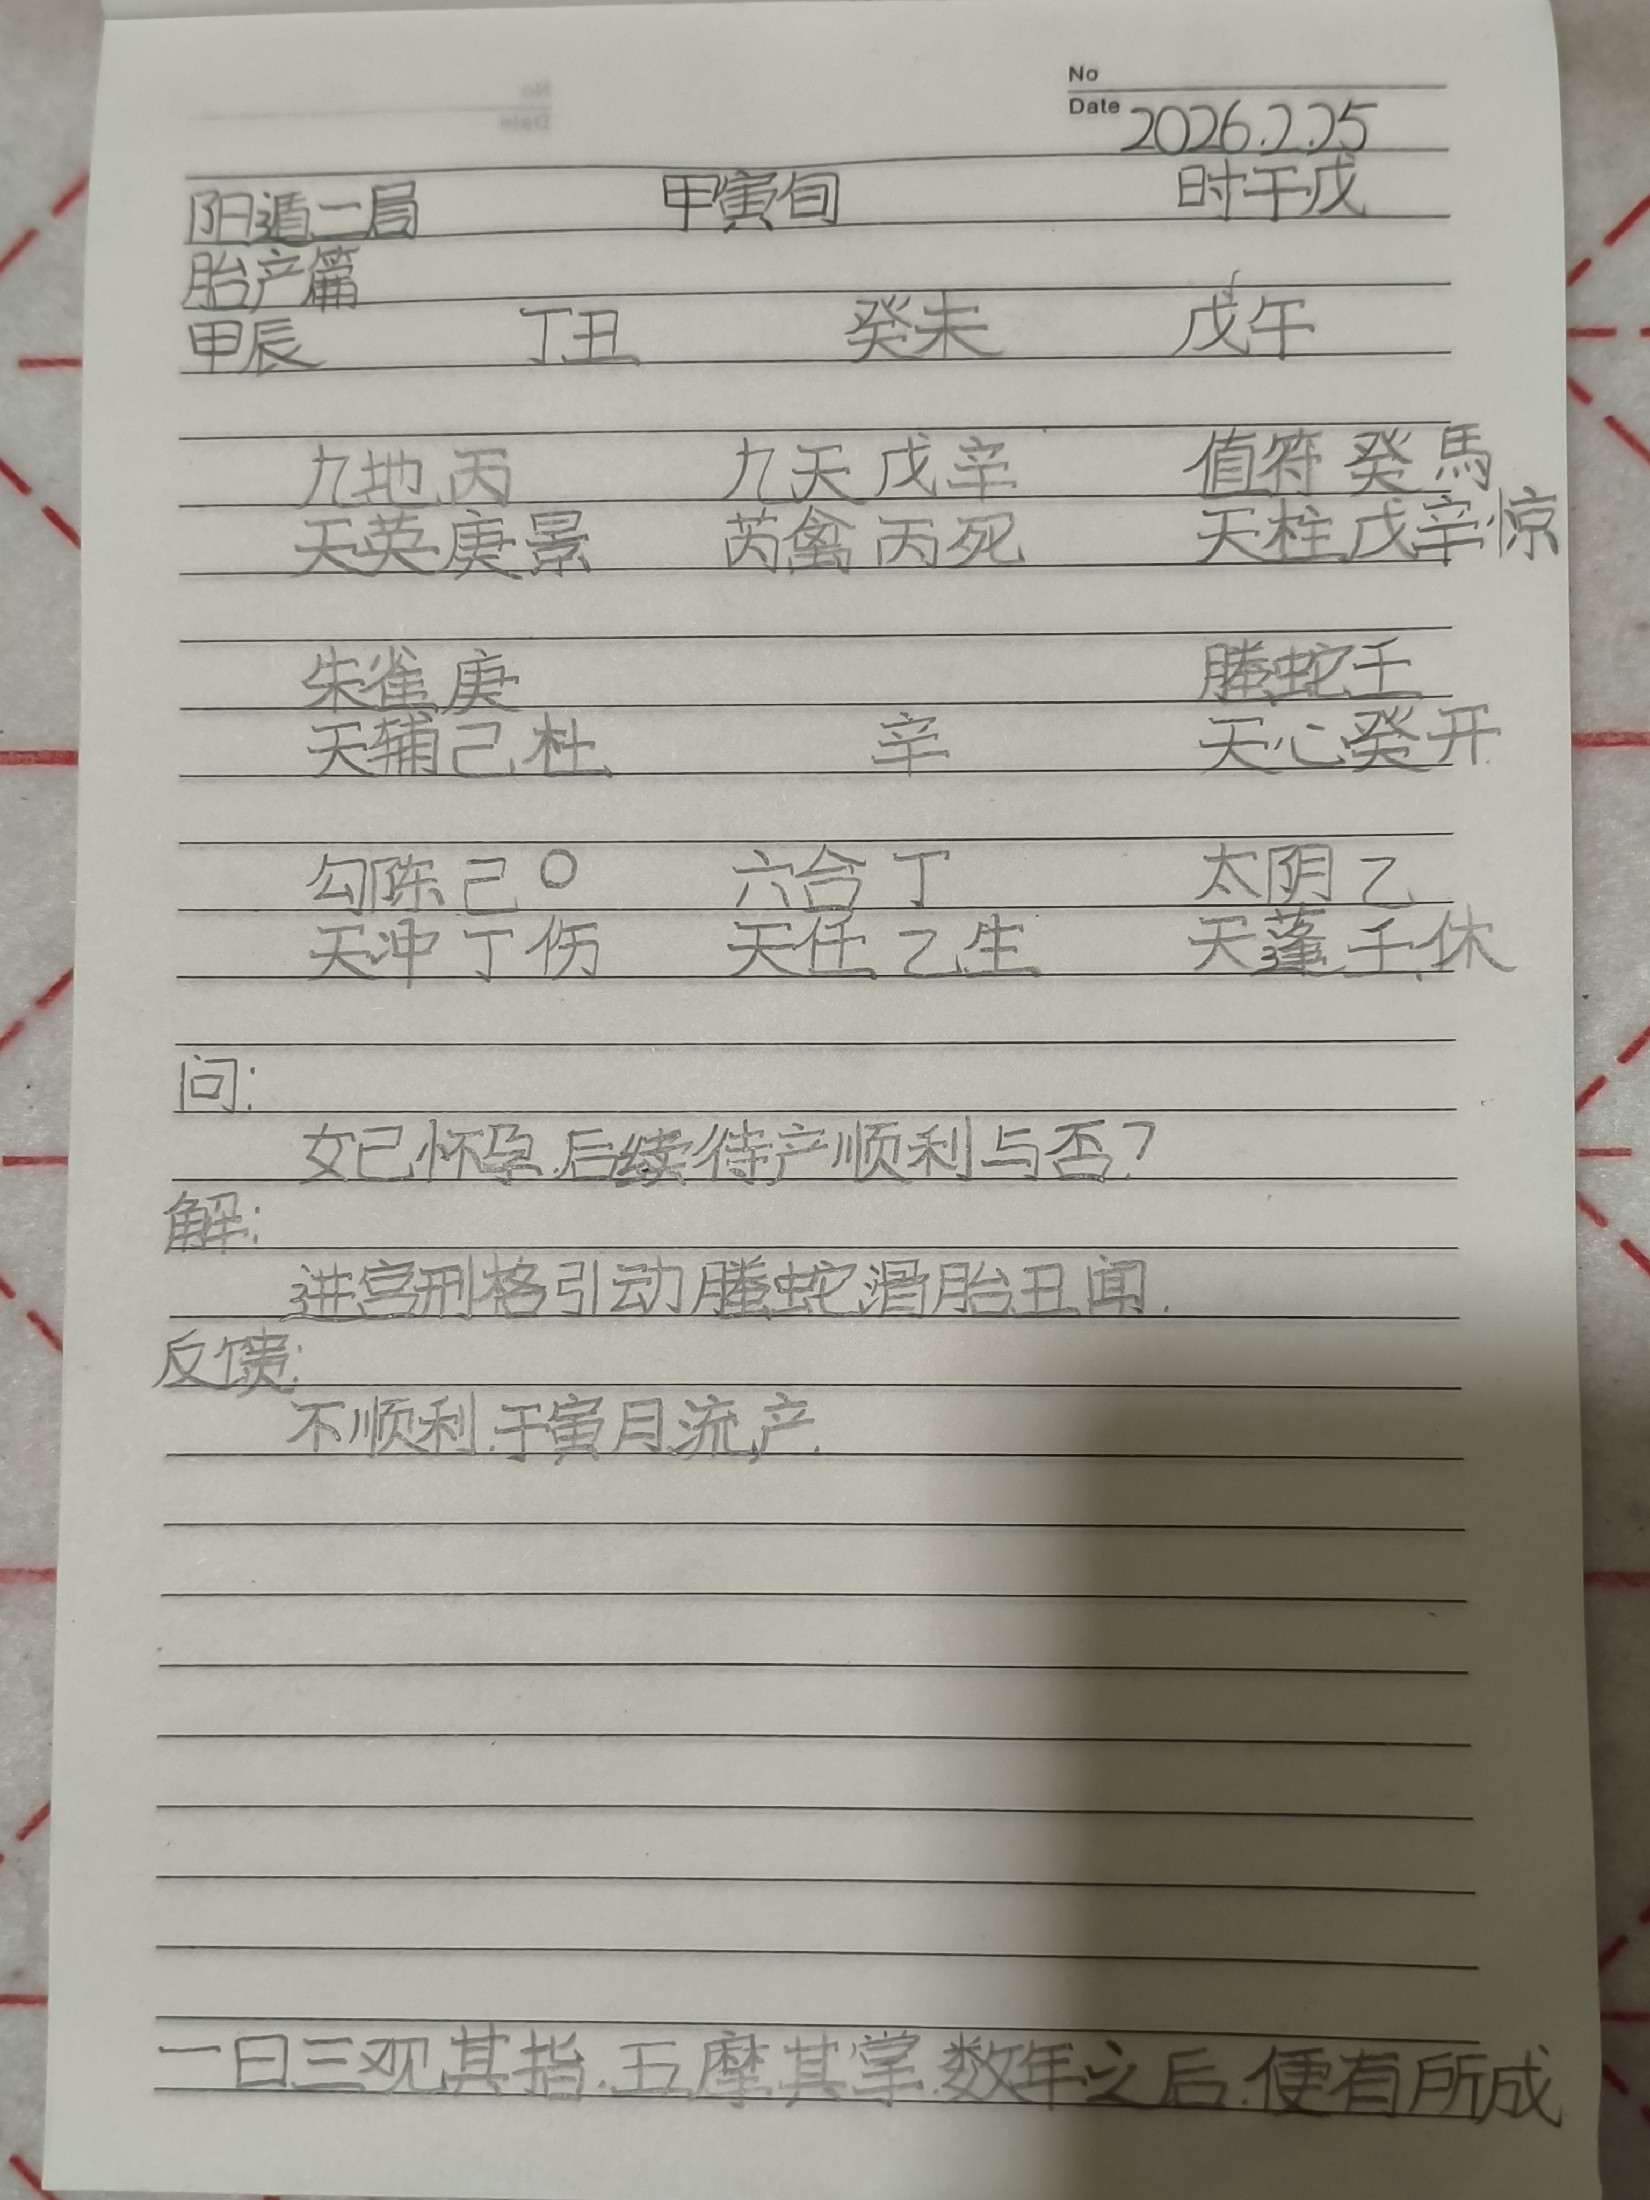 No
Date 2026.2.25
阳遁二局 甲寅旬 时干戊
胎产篇
甲辰 丁丑 癸未 戊午
九地 丙 九天 戊辛 值符 癸 馬
天英 庚 景 芮禽 丙 死 天柱 戊辛 惊
朱雀 庚 螣蛇 壬
天辅 己 杜 辛 天心 癸 开
勾陈 己 〇 六合 丁 太阴 乙
天冲 丁 伤 天任 乙 生 天蓬 壬 休
问:
女已怀孕.后续待产顺利与否?
解:
进宫刑格引动螣蛇.滑胎丑闻.
反馈:
不顺利.于寅月流产.
一日三观其指.五摩其掌.数年之后.便有所成